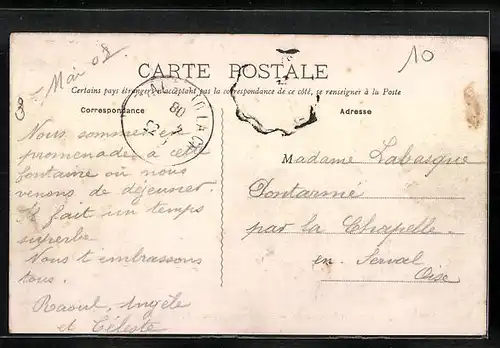 Mai 08
10
CARTE POSTALE
Certains pays étrangers n'acceptant pas la correspondance de ce côté, se renseigner à la Poste
Correspondance
Adresse
Nous sommes en
promenade à cette
fontaine où nous
venons de déjeuner.
Il fait un temps
superbe
Nous t'embrassons
tous.
Raoul, Angèle
et Céleste
Madame Labasque
Pontarmé
par la Chapelle
en Serval
Oise